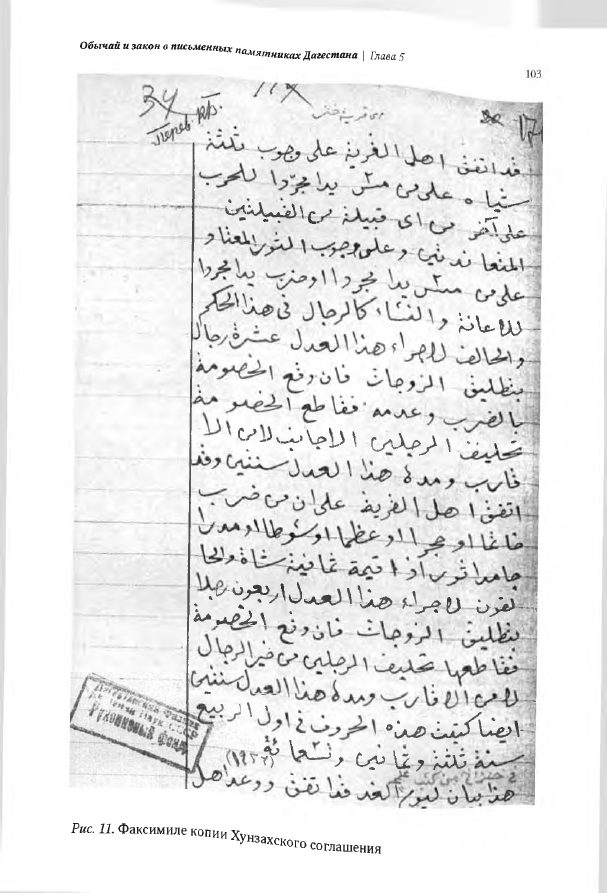 Обычай и закон в письменных памятниках Дагестана | Глава 5
103
34
Перев.
قد اتفق اهل القرية على وجوب ثلثة
شياه على من مس يدا مجردا للحرب
على آخر من اى قبيلة من القبيلتين
المتعاندتين وعلى وجوب الثور المعتاد
على من مس يدا مجردا او ضرب يدا مجردا
للاعانة والنساء كالرجال فى هذا الحكم
والحالف للاجراء هذا العدل عشرة رجال
بتطليق الزوجات فان وقع الخصومة
بالضرب وعدمه فقاطع الخصومة
تحليف الرجلين الاجانب لا من الا
قارب ومدة هذا العدل سنتين وقد
اتفق اهل القرية على ان من ضرب
او حجرا او عظما او سوطا او مدرا
جامدا ثورا ذا قيمة ثمانية شاة والحا
لفون لاجراء هذا العدل اربعون رجلا
بتطليق الزوجات فان وقع الخصومة
فقاطعها تحليف الرجلين من خير الرجال
لا من الاقارب ومدة هذا العدل سنتين
ايضا كتبت هذه الحروف فى اول الربيع
سنة ثلثة وثمانين وتسعمائة
هذا بيان ليوم الغد قد اتفق ووعد اهل
Рис. 11. Факсимиле копии Хунзахского соглашения